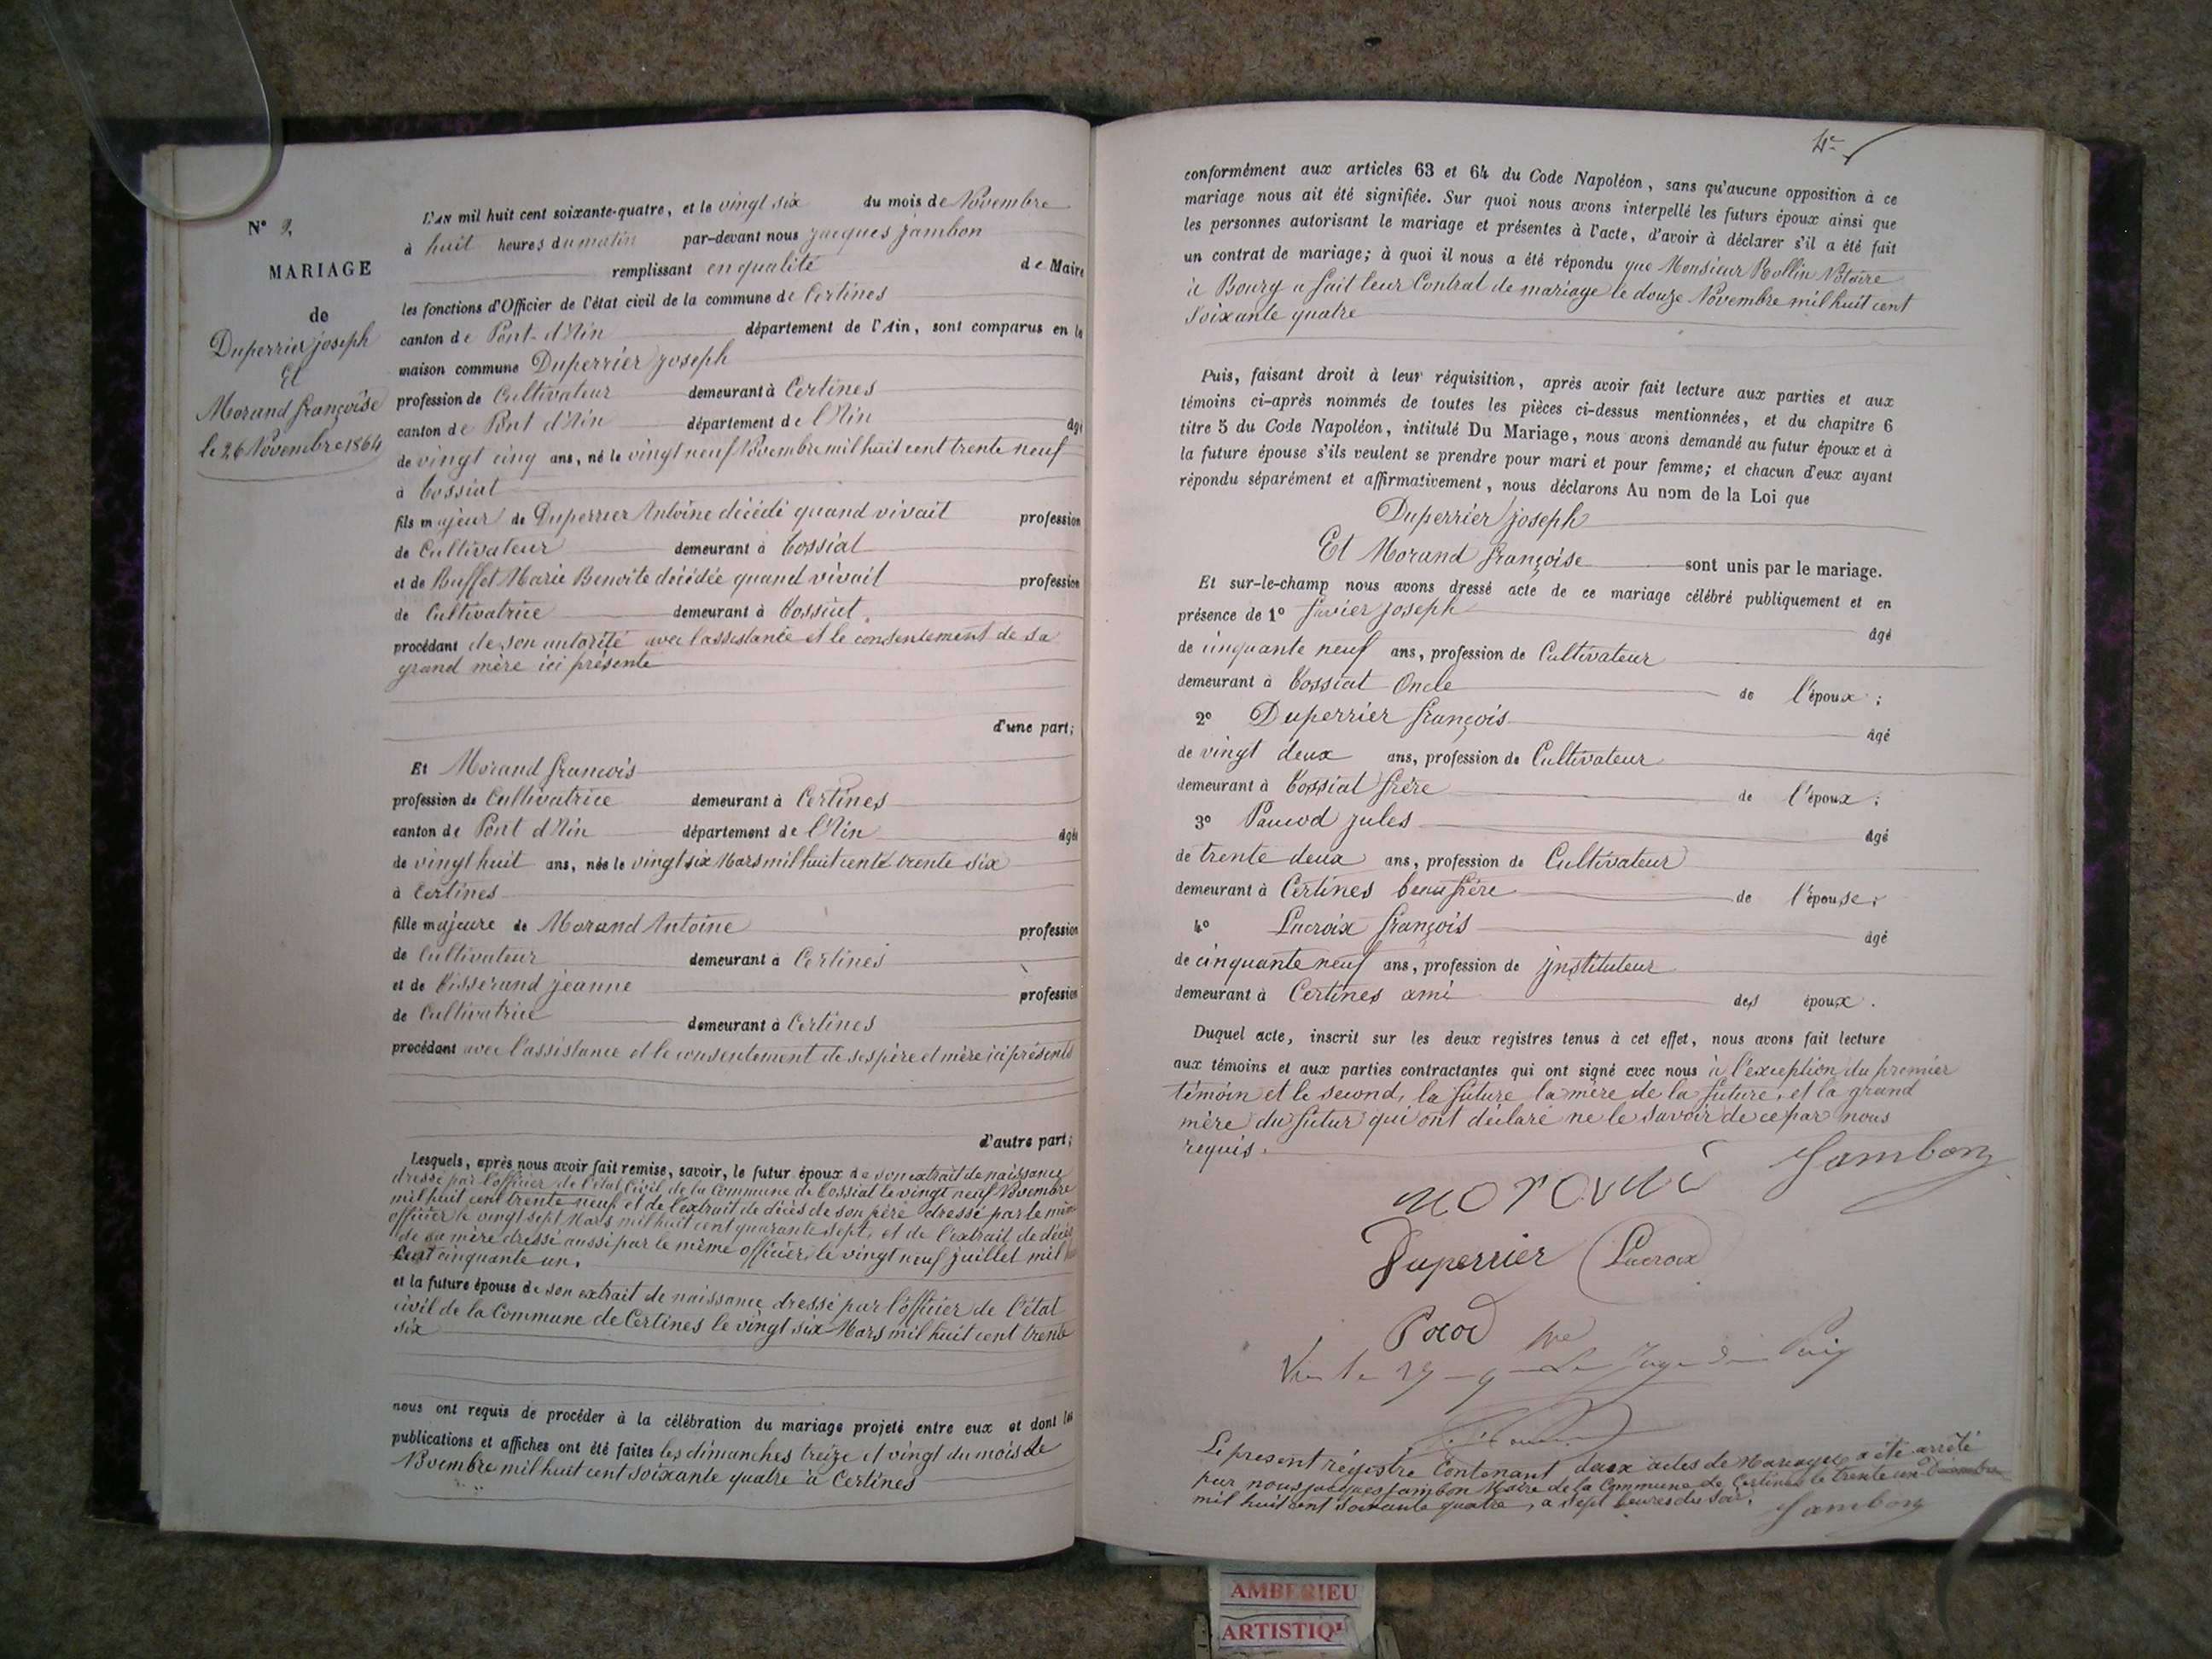 N° 2,
MARIAGE
de
Duperrier joseph
Et
Morand françoise
le 26 Novembre 1864
L'AN mil huit cent soixante-quatre, et le vingt six du mois de Novembre
à huit heures du matin par-devant nous jacques jambon
remplissant en qualité de Maire
les fonctions d'Officier de l'état civil de la commune de Certines
canton de Pont-d'Ain département de l'Ain, sont comparus en la
maison commune Duperrier joseph
profession de Cultivateur demeurant à Certines
canton de Pont d'Ain département de l'Ain âgé
de vingt cinq ans, né le vingt neuf Novembre mil huit cent trente neuf
à Tossiat
fils majeur de Duperrier Antoine décédé quand vivait profession
de Cultivateur demeurant à Tossiat
et de Buffet Marie Benoite décédée quand vivait profession
de Cultivatrice demeurant à Tossiat
procédant de son autorité avec l'assistance et le consentement de sa
grand mère ici présente
d'une part;
Et Morand françois
profession de Cultivatrice demeurant à Certines
canton de Pont d'Ain département de l'Ain âgée
de vingt huit ans, née le vingt six Mars mil huit cent trente six
à Certines
fille majeure de Morand Antoine profession
de Cultivateur demeurant à Certines
et de Tisserand jeanne profession
de Cultivatrice demeurant à Certines
procédant avec l'assistance et le consentement de ses père et mère ici présents
d'autre part;
Lesquels, après nous avoir fait remise, savoir, le futur époux de son extrait de naissance
dressé par l'officier de l'état civil de la Commune de Tossiat le vingt neuf Novembre
mil huit cent trente neuf, et de l'extrait de décès de son père dressé par le même
officier le vingt sept Mars mil huit cent quarante sept, et de l'extrait de décès
de sa mère dressé aussi par le même officier, le vingt neuf juillet mil
cent cinquante un.
et la future épouse de son extrait de naissance dressé par l'officier de l'état
civil de la Commune de Certines le vingt six Mars mil huit cent trente
six
nous ont requis de procéder à la célébration du mariage projeté entre eux et dont les
publications et affiches ont été faites les dimanches treize et vingt du mois de
Novembre mil huit cent soixante quatre à Certines
conformément aux articles 63 et 64 du Code Napoléon, sans qu'aucune opposition à ce
mariage nous ait été signifiée. Sur quoi nous avons interpellé les futurs époux ainsi que
les personnes autorisant le mariage et présentes à l'acte, d'avoir à déclarer s'il a été fait
un contrat de mariage; à quoi il nous a été répondu que Monsieur Rollin Notaire
à Bourg a fait leur Contrat de mariage le douze Novembre mil huit cent
soixante quatre
Puis, faisant droit à leur réquisition, après avoir fait lecture aux parties et aux
témoins ci-après nommés de toutes les pièces ci-dessus mentionnées, et du chapitre 6
titre 5 du Code Napoléon, intitulé Du Mariage, nous avons demandé au futur époux et à
la future épouse s'ils veulent se prendre pour mari et pour femme; et chacun d'eux ayant
répondu séparément et affirmativement, nous déclarons Au nom de la Loi que
Duperrier joseph
Et Morand françoise sont unis par le mariage.
Et sur-le-champ nous avons dressé acte de ce mariage célébré publiquement et en
présence de 1° joseph âgé
de cinquante neuf ans, profession de Cultivateur
demeurant à Tossiat Oncle de l'époux;
2° Duperrier françois âgé
de vingt deux ans, profession de Cultivateur
demeurant à Tossiat frère de l'époux;
3° jules âgé
de trente deux ans, profession de Cultivateur
demeurant à Certines beau frère de l'épouse;
4° Lacroix françois âgé
de cinquante neuf ans, profession de instituteur
demeurant à Certines ami des époux.
Duquel acte, inscrit sur les deux registres tenus à cet effet, nous avons fait lecture
aux témoins et aux parties contractantes qui ont signé avec nous à l'exception du premier
témoin et le second, la future la mère de la future, et la grand
mère du futur qui ont déclaré ne le savoir de ce par nous
requis.
Jambon
Duperrier Lacroix
Le présent régistre Contenant deux actes de Mariages a été arrêté
par nous jacques jambon Maire de la Commune de Certines le trente un Décembre
mil huit cent soixante quatre, a sept heures du soir. Jambon
AMBERIEU
ARTISTIQ